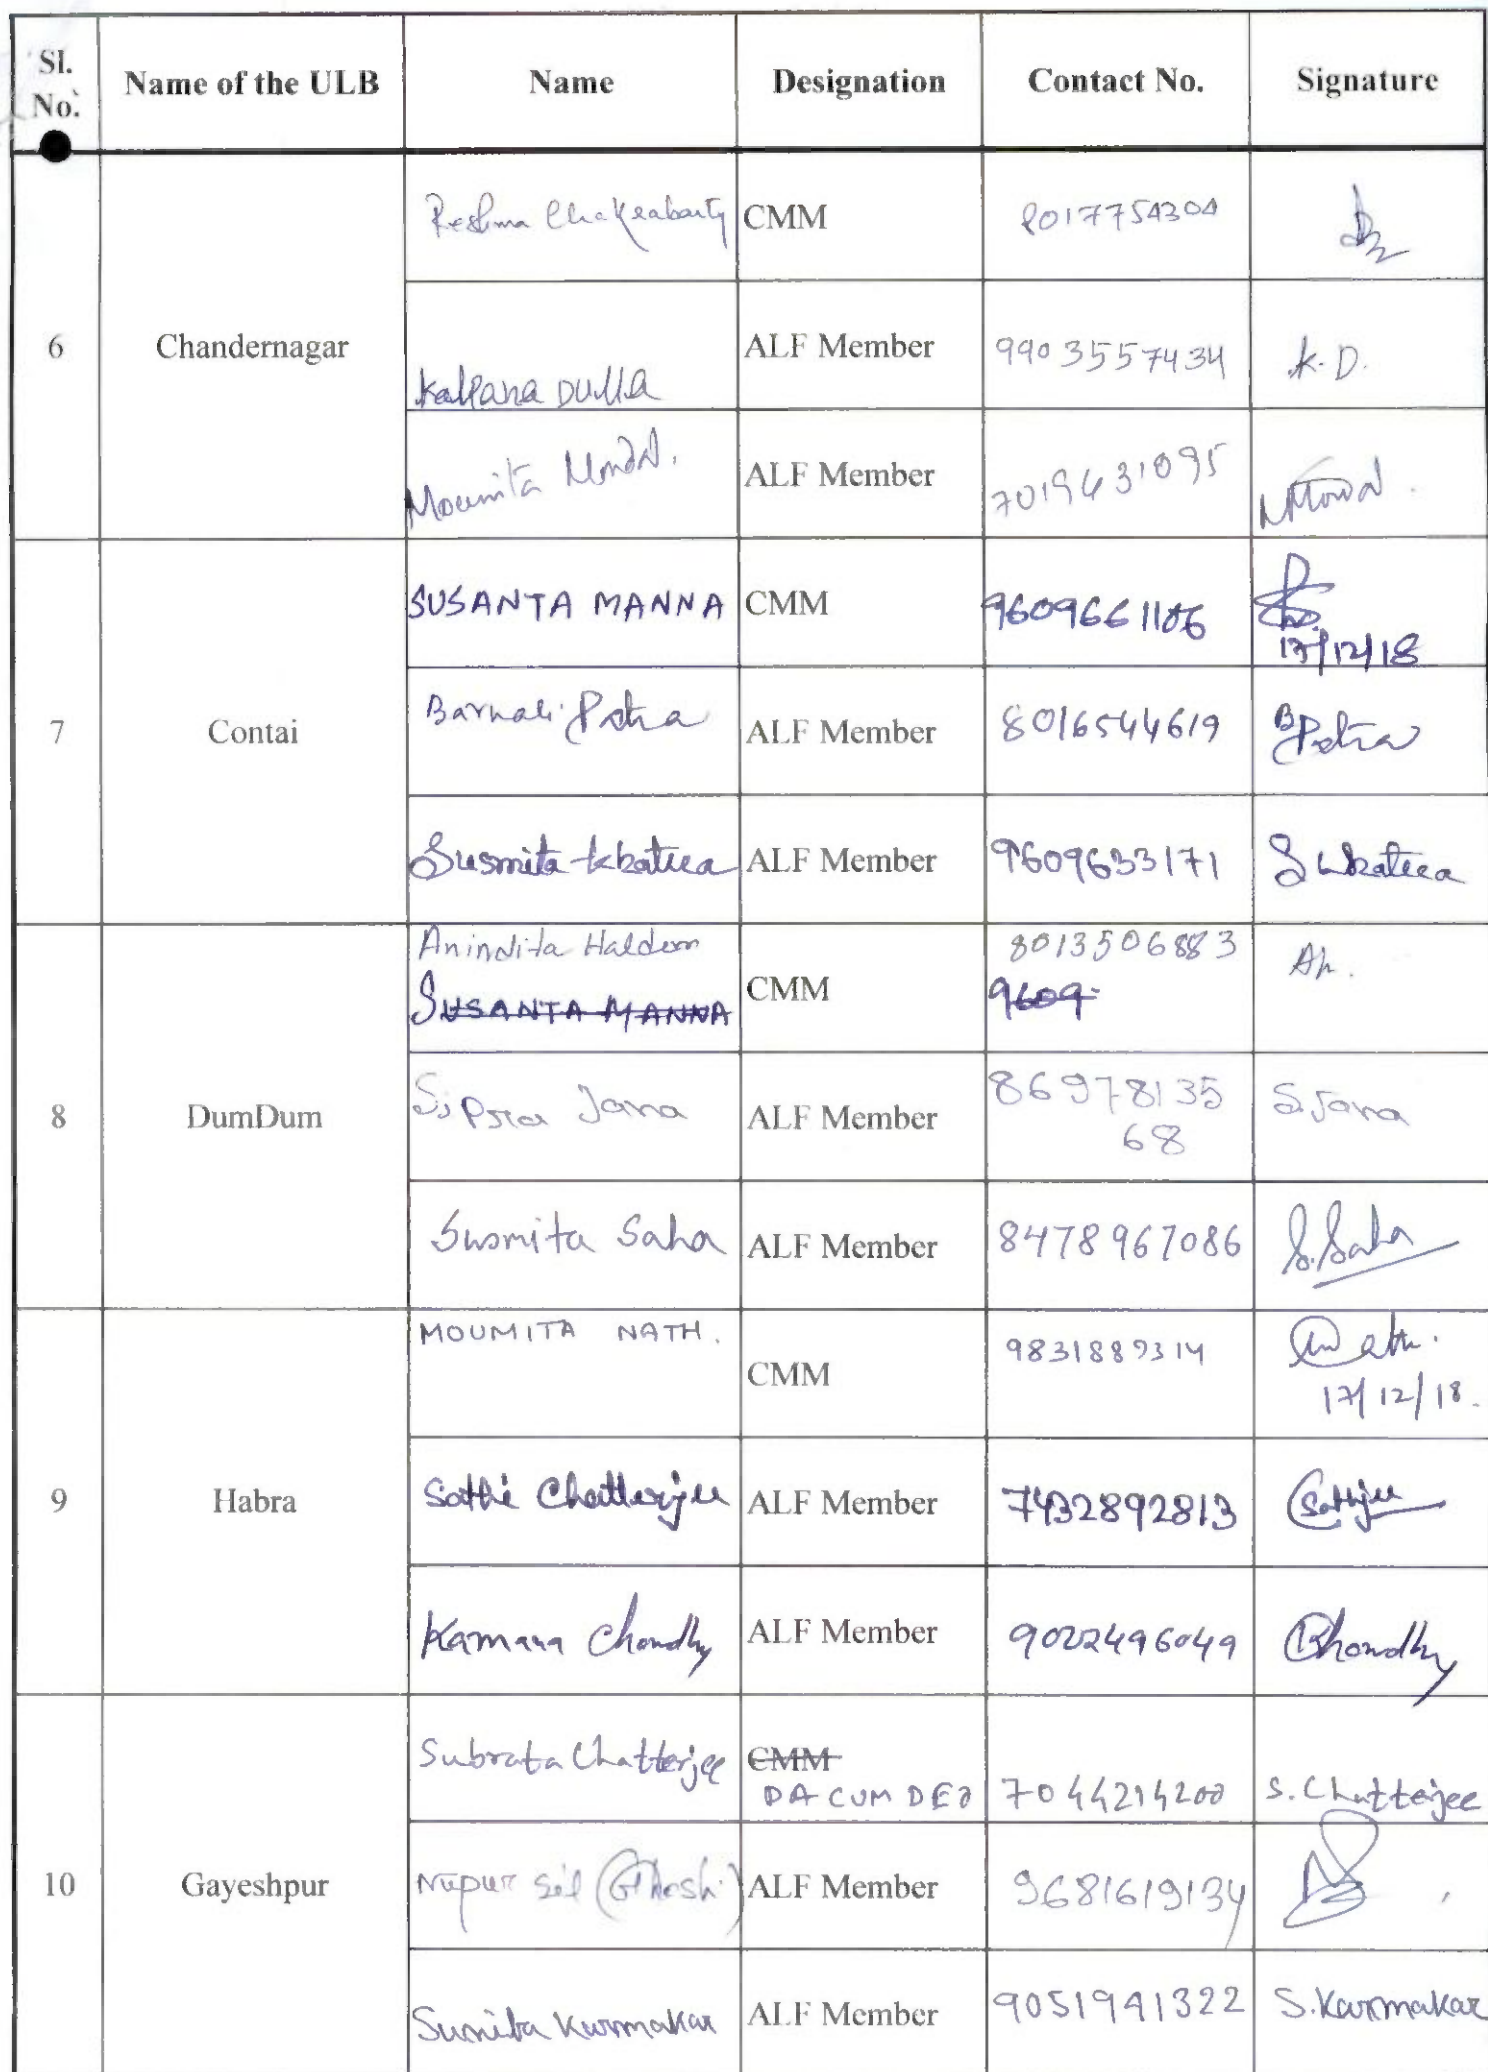 Sl. No. Name of the ULB Name Designation Contact No. Signature
Reshma Chakraborty CMM 8017754304
6 Chandernagar
Kalpana Dutta ALF Member 9903557434 K.D.
Moumita Mondal. ALF Member 7019431095 MMondal.
SUSANTA MANNA CMM 9609661106
17/12/18
7 Contai
Barnali Patra ALF Member 8016544619 BPatra
Susmita ALF Member 9609633171
Anindita Halder 8013506883 Ah.
SUSANTA MANNA CMM 9609
8 DumDum
Sipra Jana ALF Member 8697813568 S.Jana
Susmita Saha ALF Member 8478967086 S.Saha
MOUMITA NATH. CMM 9831889314
17/12/18.
9 Habra
Sathi Chatterjee ALF Member 7432892813
Kamana Chowdhy ALF Member 9022496049 Chowdhy
Subrata Chatterjee CMM
DA CUM DEO 7044214200 S. Chatterjee
10 Gayeshpur
Nupur Sil (Ghosh) ALF Member 9681619134
Sumita Karmakar ALF Member 9051941322 S.Karmakar